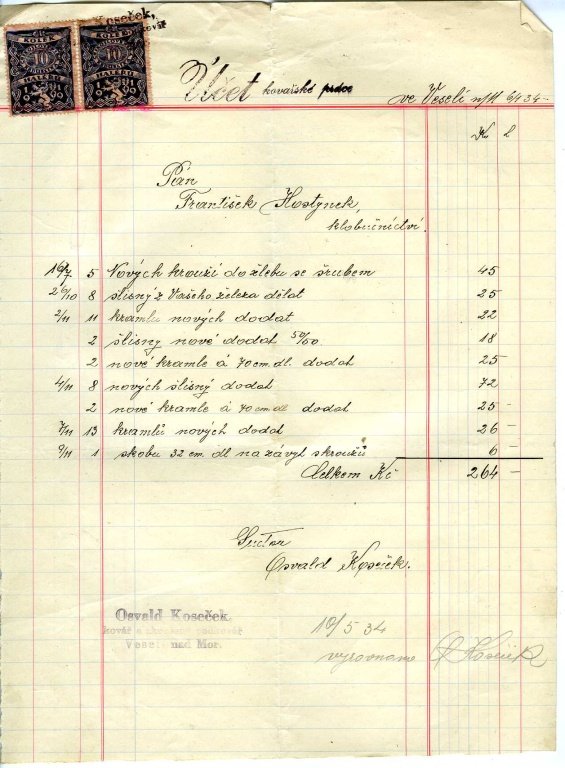 Koseček,
KOLEK KOLEK
10 10
HALÉŘŮ HALÉŘŮ
Účet kovářské práce ve Veselí n/M 6/4 34
K h
Pán
František Hostynek,
klobučnictví.
16/7 5 Nových krouží do žlebu se šrubem 45
26/10 8 šlisný z Vašeho železa dělat 25
2/11 11 kramlu nových dodat 22
2 šlisny nové dodat 50/50 18
2 nové kramle á 70 cm. dl. dodat 25
4/11 8 nových šlisný dodat 72
2 nové kramle á 70 cm dl dodat 25 -
7/11 13 kramlů nových dodat 26 -
9/11 1 skobu 32 cm. dl na závyl skroužů 6 -
Celkem Kč 264 -
Osvald Koseček.
Osvald Koseček,
kovář a podkovář
Veselí nad Mor.
10/5 34
vyrovnano O Koseček